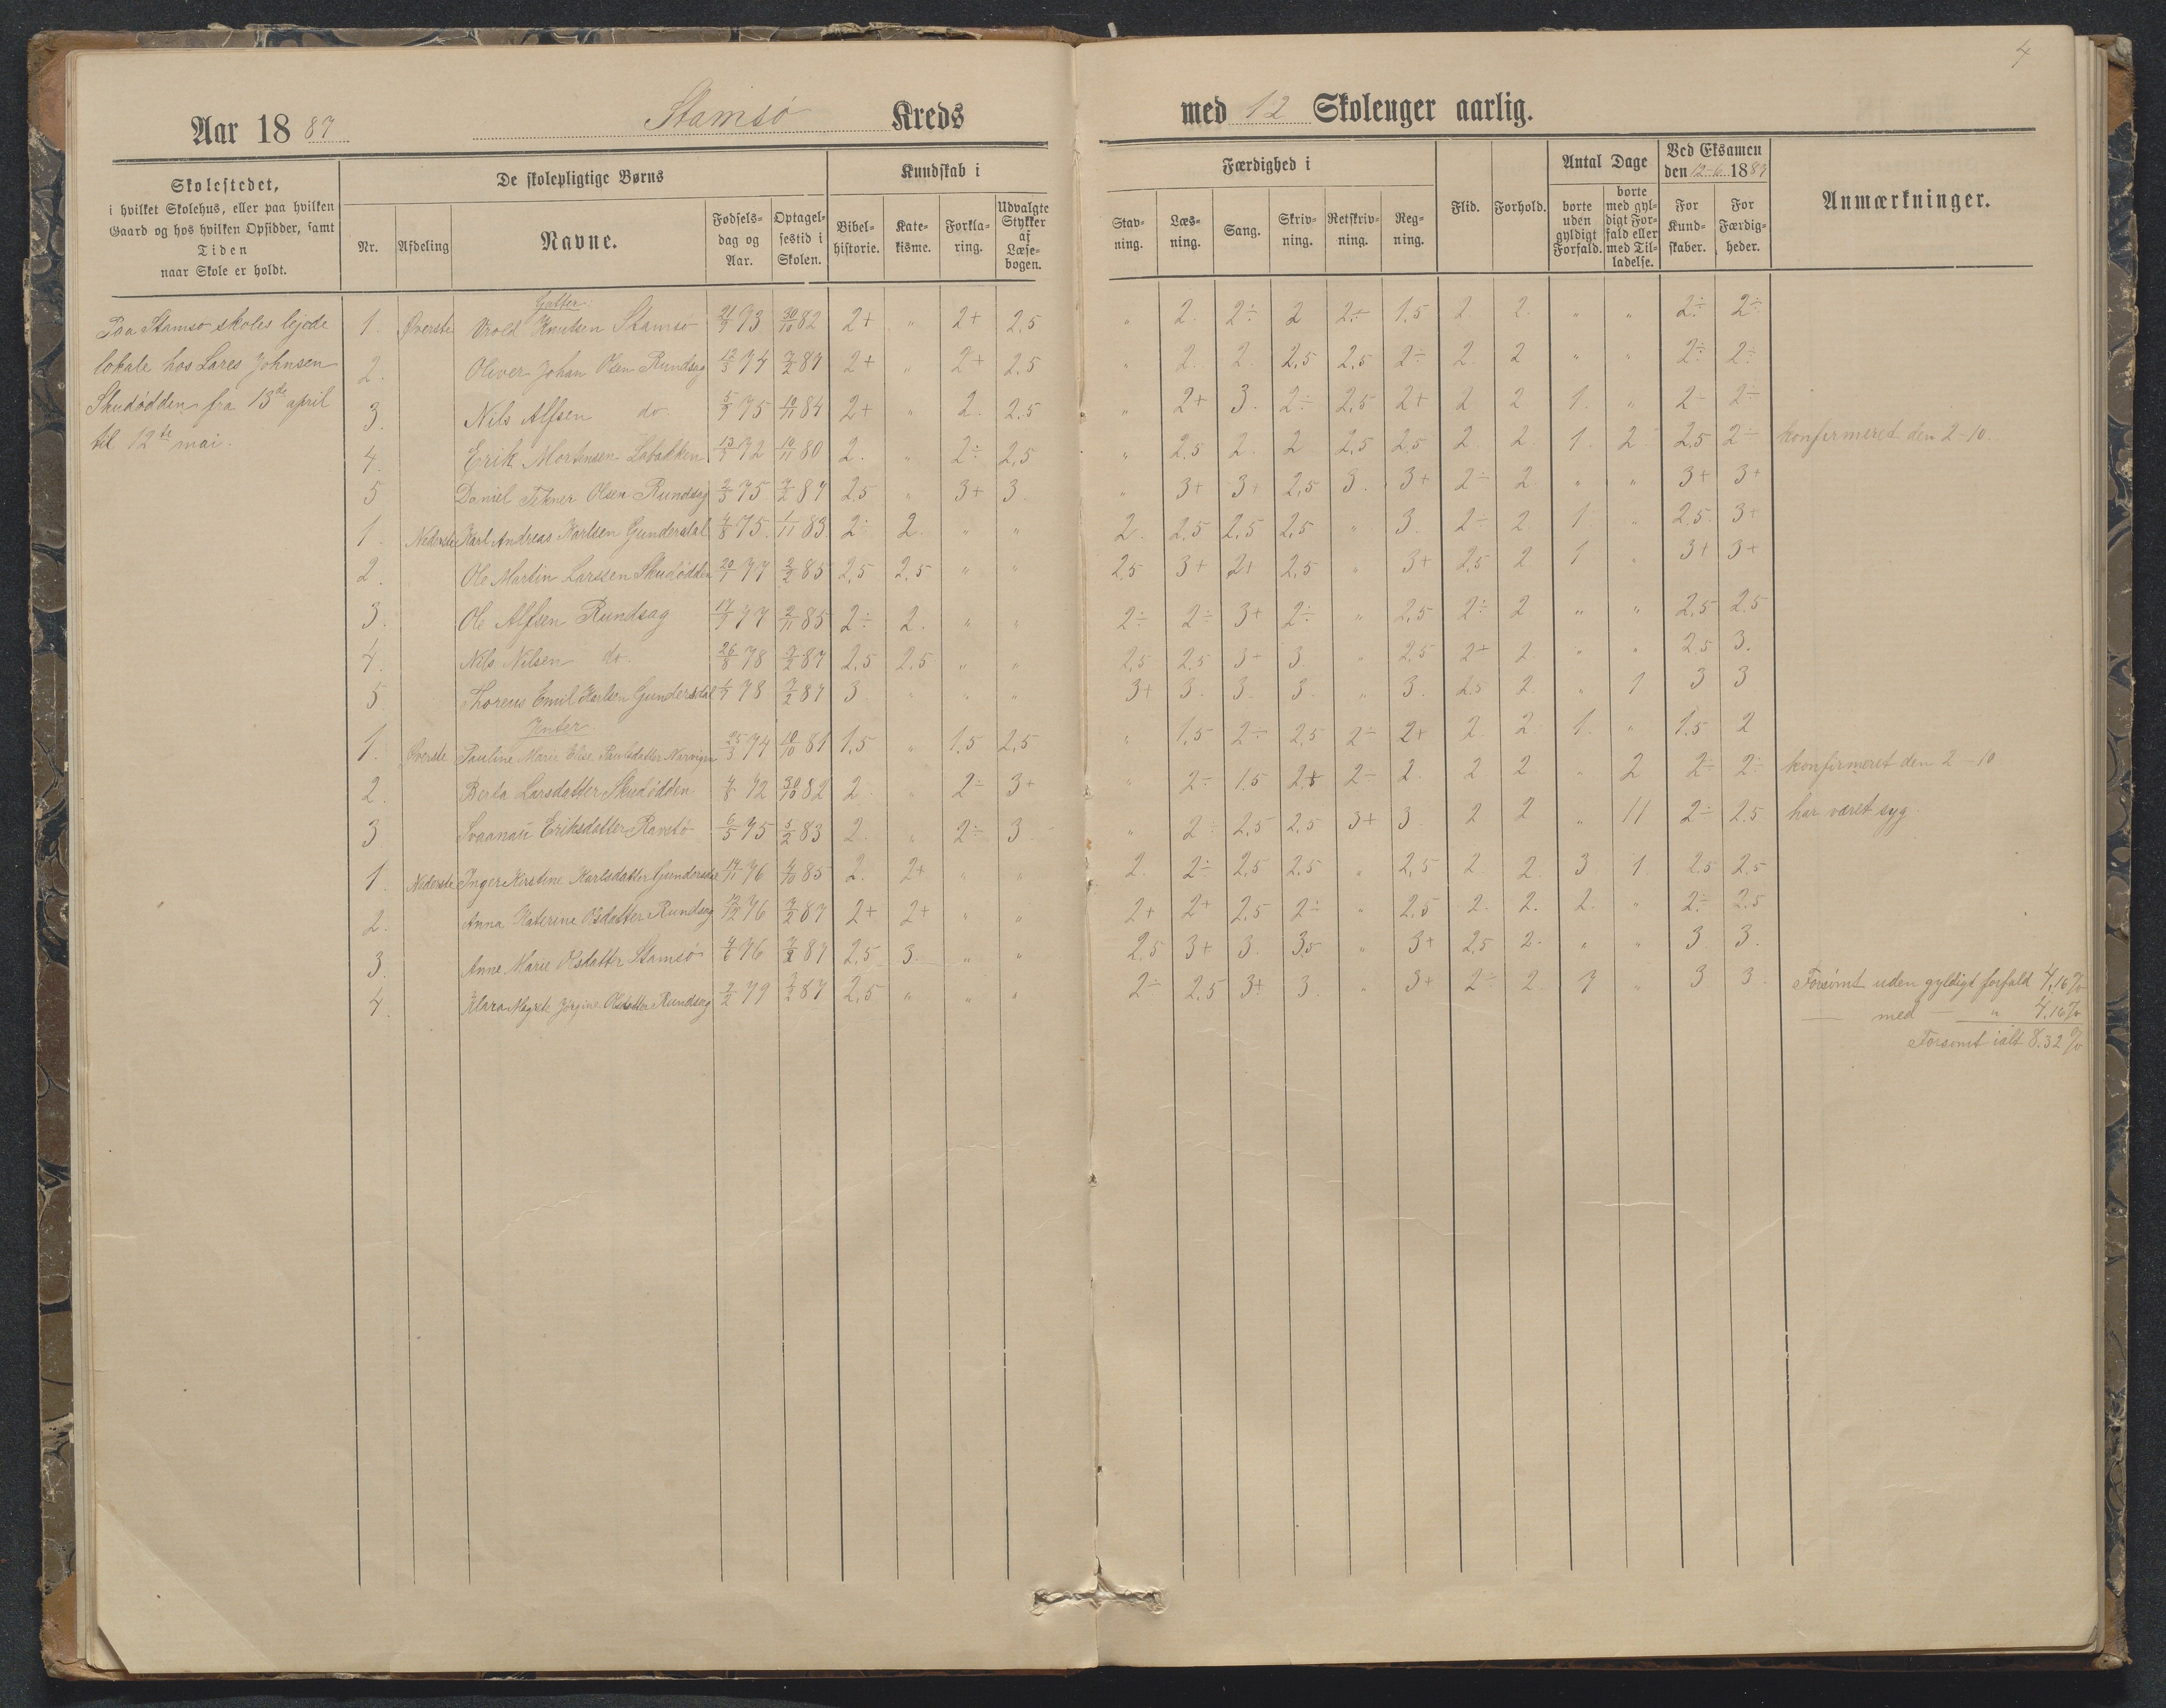 4
Aar 1887 Stamsø Kreds med 12 Skoleuger aarlig.
Skolestedet,
i hvilket Skolehus, eller paa hvilken
Gaard og hos hvilken Opsidder, samt
Tiden
naar Skole er holdt.
De skolepligtige Børns
Nr. Afdeling Navne. Fødselsdag og Aar. Optagelsestid i Skolen.
Kundskab i
Bibelhistorie. Katekisme. Forklaring. Udvalgte Stykker af Læsebogen.
Færdighed i
Stavning. Læsning. Sang. Skrivning. Retskrivning. Regning.
Flid. Forhold.
Antal Dage
borte uden gyldigt Forfald. borte med gyldigt Forfald eller med Tilladelse.
Ved Eksamen
den 12-6 1887
For Kundskaber. For Færdigheder.
Anmærkninger.
Paa Stamsø skoles lejede
lokale hos Lares Johnsen
Skudødden fra 13de april
til 12te mai.
Gutter.
1. Øverste Knutsen Stamsø 21/9 73 30/10 82 2+ " 2+ 2,5 " 2. 2÷ 2 2÷ 1,5 2. 2. " " 2÷ 2÷
2. Oliver Johan Olsen Rundsag 12/3 74 7/2 87 2+ " 2+ 2,5 " 2. 2. 2,5 2,5 2÷ 2. 2 " " 2÷ 2÷
3. Nils Alfsen do. 5/9 75 10/11 84 2+ " 2. 2,5 " 2+ 3. 2÷ 2,5 2+ 2 2 1. " 2÷ 2÷
4. Erik Mortensen Labakken 13/9 72 10/11 80 2. " 2÷ 2,5 " 2,5 2. 2 2,5 2,5 2. 2. 1. 2. 2,5 2÷ konfirmeret den 2-10.
5 Daniel Olsen Rundsag 75 7/2 87 2,5 " 3+ 3. " 3+ 3+ 2,5 3. 3+ 2÷ 2. " " 3+ 3+
1. Nederste Karl Andreas Karlsen Gunderstal 4/8 75. 1/11 83. 2÷ 2. " " 2. 2,5 2,5 2,5 " 3. 2÷ 2. 1 " 2,5 3+
2. Ole Martin Larssen Skudødden 20/1 77 2/2 85 2,5 2,5 " " 2,5 3+ 2+ 2,5 " 3+ 2,5 2. 1 " 3+ 3+
3. Ole Alfsen Rundsag 17/7 77 2/11 85 2÷ 2. " " 2÷ 2÷ 3+ 2÷ " 2,5 2÷ 2 " " 2,5 2,5
4. Nils Nilsen do. 26/8 78 7/2 87 2,5 2,5 " " 2,5 2,5 3+ 3. " 2,5 2+ 2. " " 2,5 3.
5. Thoreus Emil Karlsen Gunderstal 78 7/2 87 3. " " " 3+ 3. 3. 3. " 3. 2,5 2. " 1 3 3
Jenter
1. Øverste Pauline Marie Elise Paulsdatter 25/3 74 10/10 81 1,5 " 1,5 2,5 " 1,5 2÷ 2,5 2÷ 2+ 2. 2. 1. " 1,5 2
2. Berta Larsdatter Skudødden 4/8 72 30/10 82 2. " 2÷ 3+ " 2÷ 1,5 2+ 2÷ 2. 2 2. " 2 2÷ 2÷ konfirmeret den 2-10
3 Eriksdatter 6/5 75 5/2 83 2. " 2÷ 3. " 2÷ 2,5 2,5 3+ 3. 2 2 " 11 2÷ 2,5 har været syg.
1. Nederste Inger Kirstine Karlsdatter Gunderstal 14/11 76 4/10 85 2. 2+ " " 2. 2÷ 2,5 2,5 " 2,5 2. 2. 3 1 2,5 2,5
2. Anna Katerine Olsdatter Rundsag 12/12 76 7/2 87 2+ 2+ " " 2+ 2+ 2,5 2÷ " 2,5 2. 2. 2. " 2÷ 2,5
3. Anne Marie Olsdatter Stamsø 4/6 76 7/2 87 2,5 3. " " 2,5 3+ 3. 3,5 " 3+ 2,5 2. " " 3. 3.
4. Klara Magrete Jørgine Olsdatter Rundsag 2/2 79 7/2 87 2,5 " " " 2÷ 2,5 3+ 3. " 3+ 2÷ 2. 7 " 3 3. Forsømt uden gyldigt forfald 4,16%
— med — " 4,16%
Forsømt ialt 8,32%